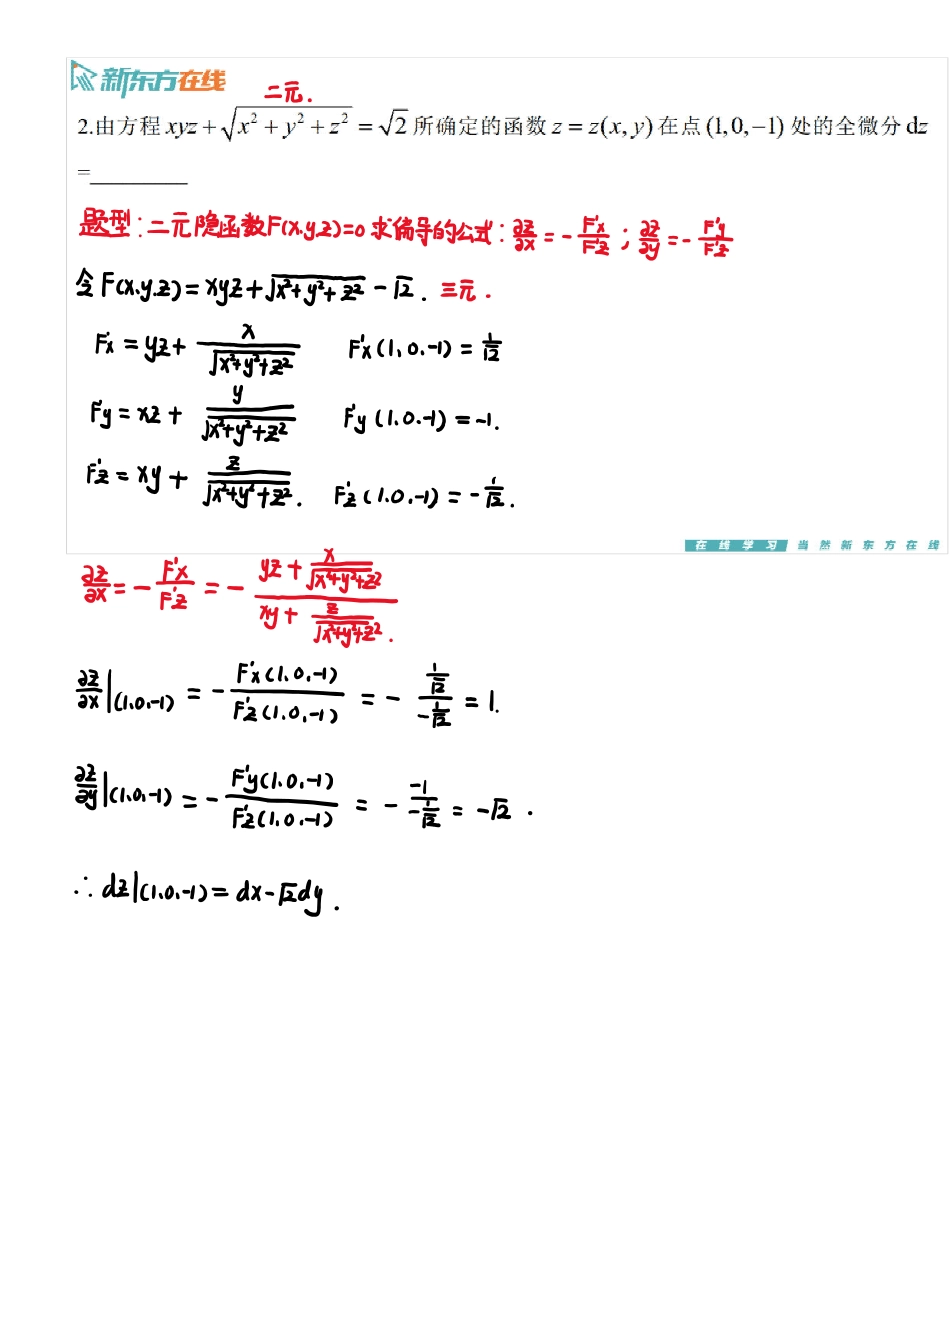 新东方在线
二元.
2.由方程 xyz + √(x² + y² + z²) = √2 所确定的函数 z = z(x, y) 在点 (1,0,−1) 处的全微分 dz
=________
题型:二元隐函数F(x,y,z)=0 求偏导的公式: ∂z/∂x = - F'x/F'z ; ∂z/∂y = - F'y/F'z
令 F(x,y,z) = xyz + √(x²+y²+z²) - √2. 三元.
F'x = yz + x/√(x²+y²+z²) F'x(1,0,-1) = 1/√2
F'y = xz + y/√(x²+y²+z²) F'y(1,0,-1) = -1.
F'z = xy + z/√(x²+y²+z²). F'z(1,0,-1) = - 1/√2.
在线学习 当然新东方在线
∂z/∂x = - F'x/F'z = - (yz + x/√(x²+y²+z²))/(xy + z/√(x²+y²+z²)).
∂z/∂x|(1,0,-1) = - F'x(1,0,-1)/F'z(1,0,-1) = - (1/√2)/(-1/√2) = 1.
∂z/∂y|(1,0,-1) = - F'y(1,0,-1)/F'z(1,0,-1) = - (-1)/(-1/√2) = -√2.
∴ dz|(1,0,-1) = dx - √2dy.